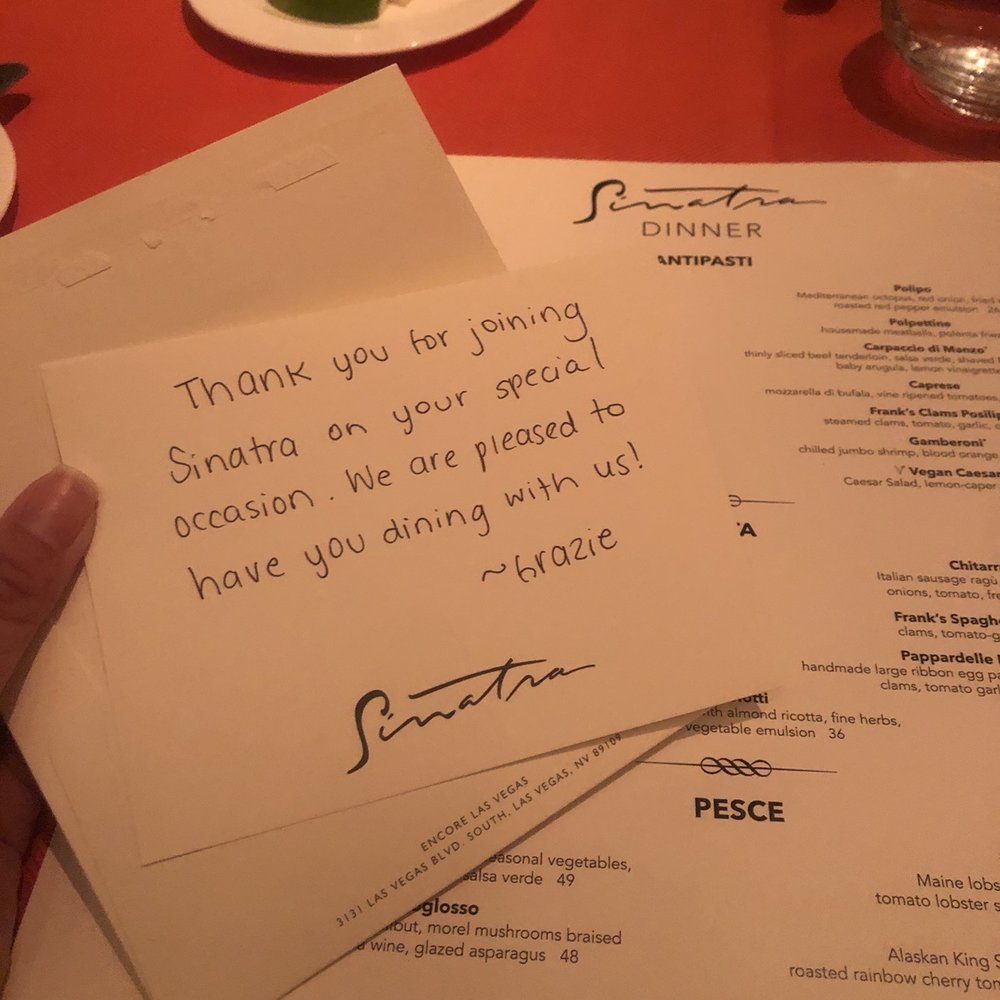 Thank you for joining
Sinatra on your special
occasion. We are pleased to
have you dining with us!
~Grazie
Sinatra
ENCORE LAS VEGAS
3131 LAS VEGAS BLVD. SOUTH, LAS VEGAS, NV 89109
Sinatra
DINNER
ANTIPASTI
Polipo
Mediterranean octopus, red onion, fried
roasted red pepper emulsion 26
Polpettine
housemade meatballs, polenta
Carpaccio di Manzo*
thinly sliced beef tenderloin, salsa verde, shaved
baby arugula, lemon vinaigrette
Caprese
mozzarella di bufala, vine ripened tomatoes,
Frank's Clams Posillip
steamed clams, tomato, garlic,
Gamberoni*
chilled jumbo shrimp, blood orange
V Vegan Caesar
Caesar Salad, lemon-caper
'A
Chitarr
Italian sausage ragù
onions, tomato, fre
Frank's Spaghe
clams, tomato-g
Pappardelle
handmade large ribbon egg pa
clams, tomato garl
notti
ith almond ricotta, fine herbs,
vegetable emulsion 36
PESCE
easonal vegetables,
salsa verde 49
oglosso
but, morel mushrooms braised
wine, glazed asparagus 48
Maine lobs
tomato lobster s
Alaskan King S
roasted rainbow cherry tom